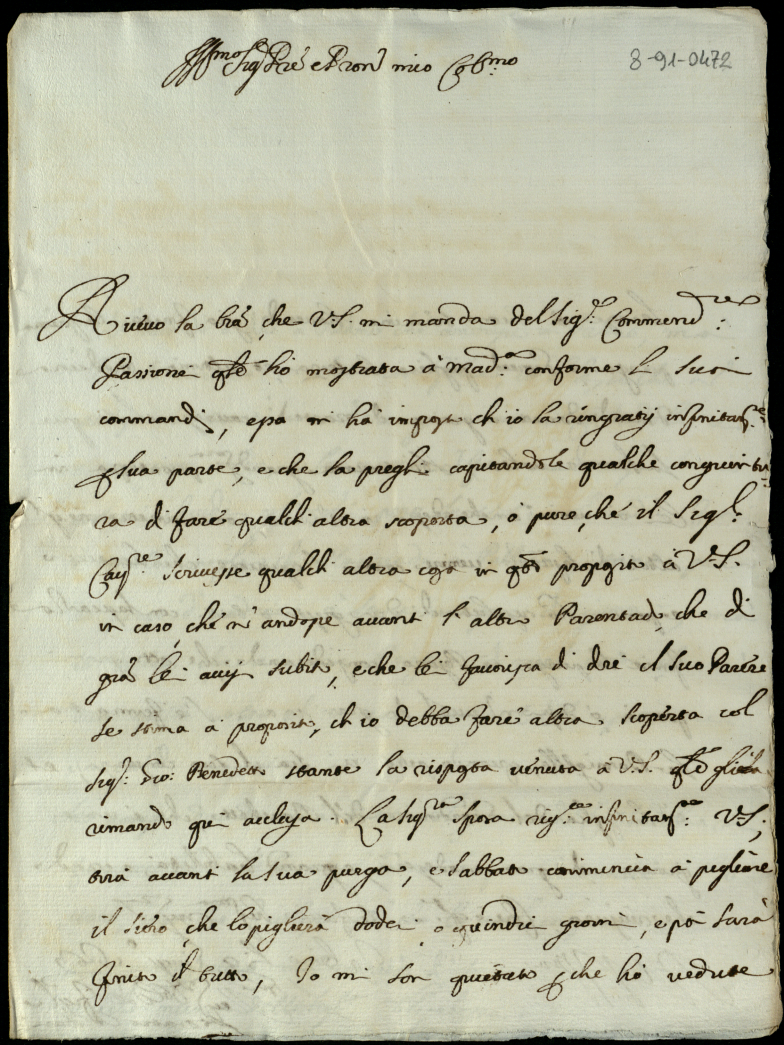 Ill.mo Sig.r Pre e Pron mio Col.mo
8-91-0472
Ricevo la lra che V.S. mi manda del Sig.r Commend.re
Passioni qle hò mostrata à Mad.a conforme li suoi
commandi, essa mi hà imposto ch'io la ringratij infinitam.te
p sua parte, e che la preghi capitandole qualche congiuntu
ra di fare qualch'altra scoperta, ò pure che il Sig.r
Cav.re scrivesse qualch'altra cosa in qto proposito à V.S.
in caso che n'andasse avanti l'altro Parentado che di
gra lei avvisi subito, e che lei favorisca di dre il suo Parere
se stima à proposito, ch'io debba fare altra scoperta col
Sig.r Gio: Benedetto stante la risposta venuta à V.S. qle gliela
rimando qui acclusa. La Sig.ra sposa riv.ce infinitam.te V.S.,
tira avanti la sua purga, e sabbato comincia à pigliare
il siero che lo piglierà dodici o quindici giorni, e poi sarà
finito il tutto, Io mi son quietato pche hò vedute